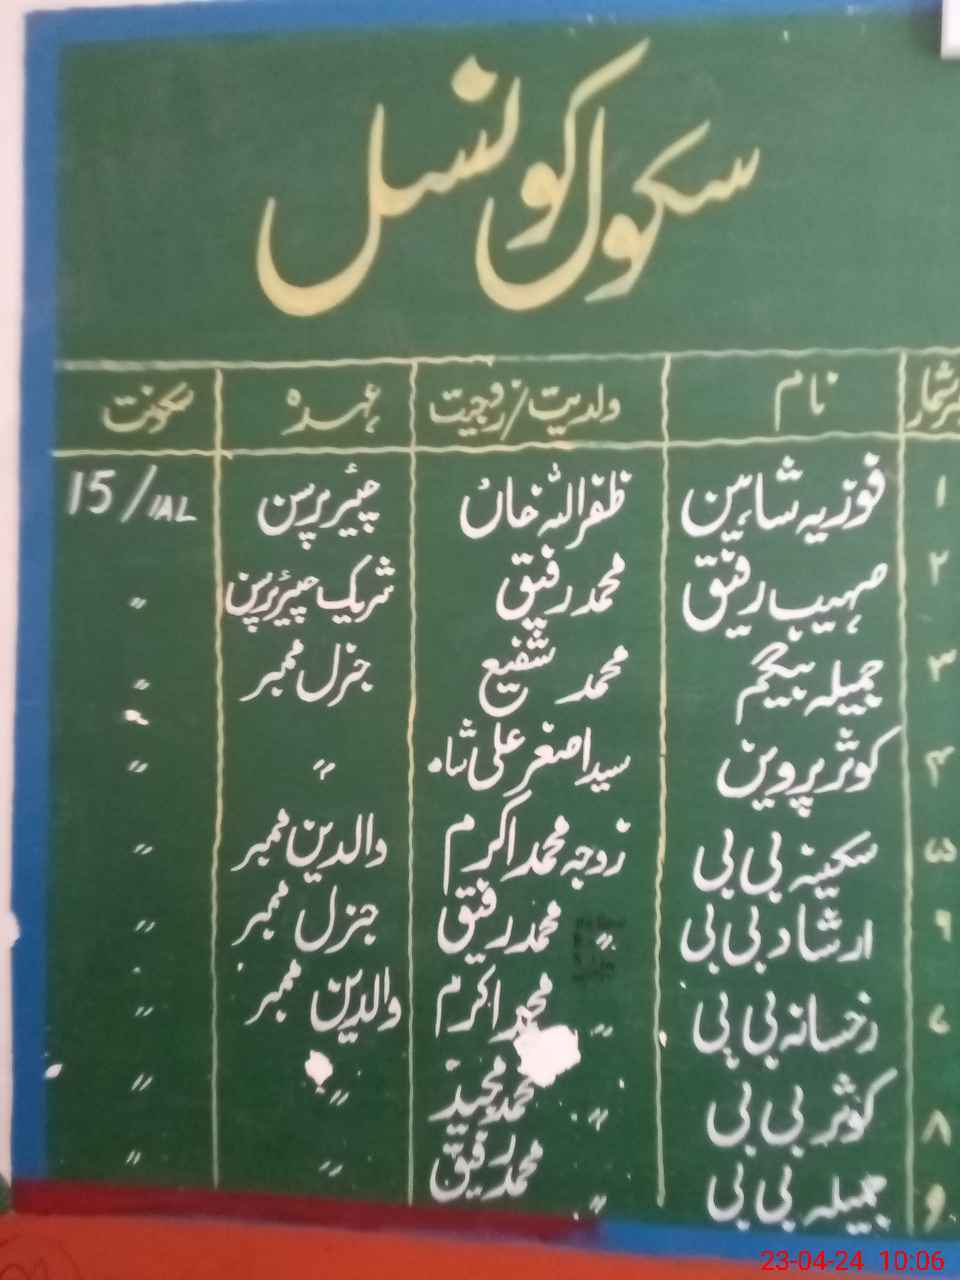 سکول کونسل
نمبر شمار نام ولدیت/زوجیت عہدہ سکونت
۱ فوزیہ شاہین ظفراللہ خاں چیئرپرسن 15/1AL
۲ صہیب رفیق محمد رفیق شریک چیئرپرسن 〃
۳ جمیلہ بیگم محمد شفیع جنرل ممبر 〃
۴ کوثر پروین سید اصغر علی شاہ 〃 〃
۵ سکینہ بی بی زوجہ محمد اکرم والدین ممبر 〃
۶ ارشاد بی بی 〃 محمد رفیق جنرل ممبر 〃
۷ رخسانہ بی بی 〃 محمد اکرم والدین ممبر 〃
۸ کوثر بی بی 〃 محمد مجید 〃 〃
۹ جمیلہ بی بی 〃 محمد رفیق 〃 〃
23-04-24 10:06